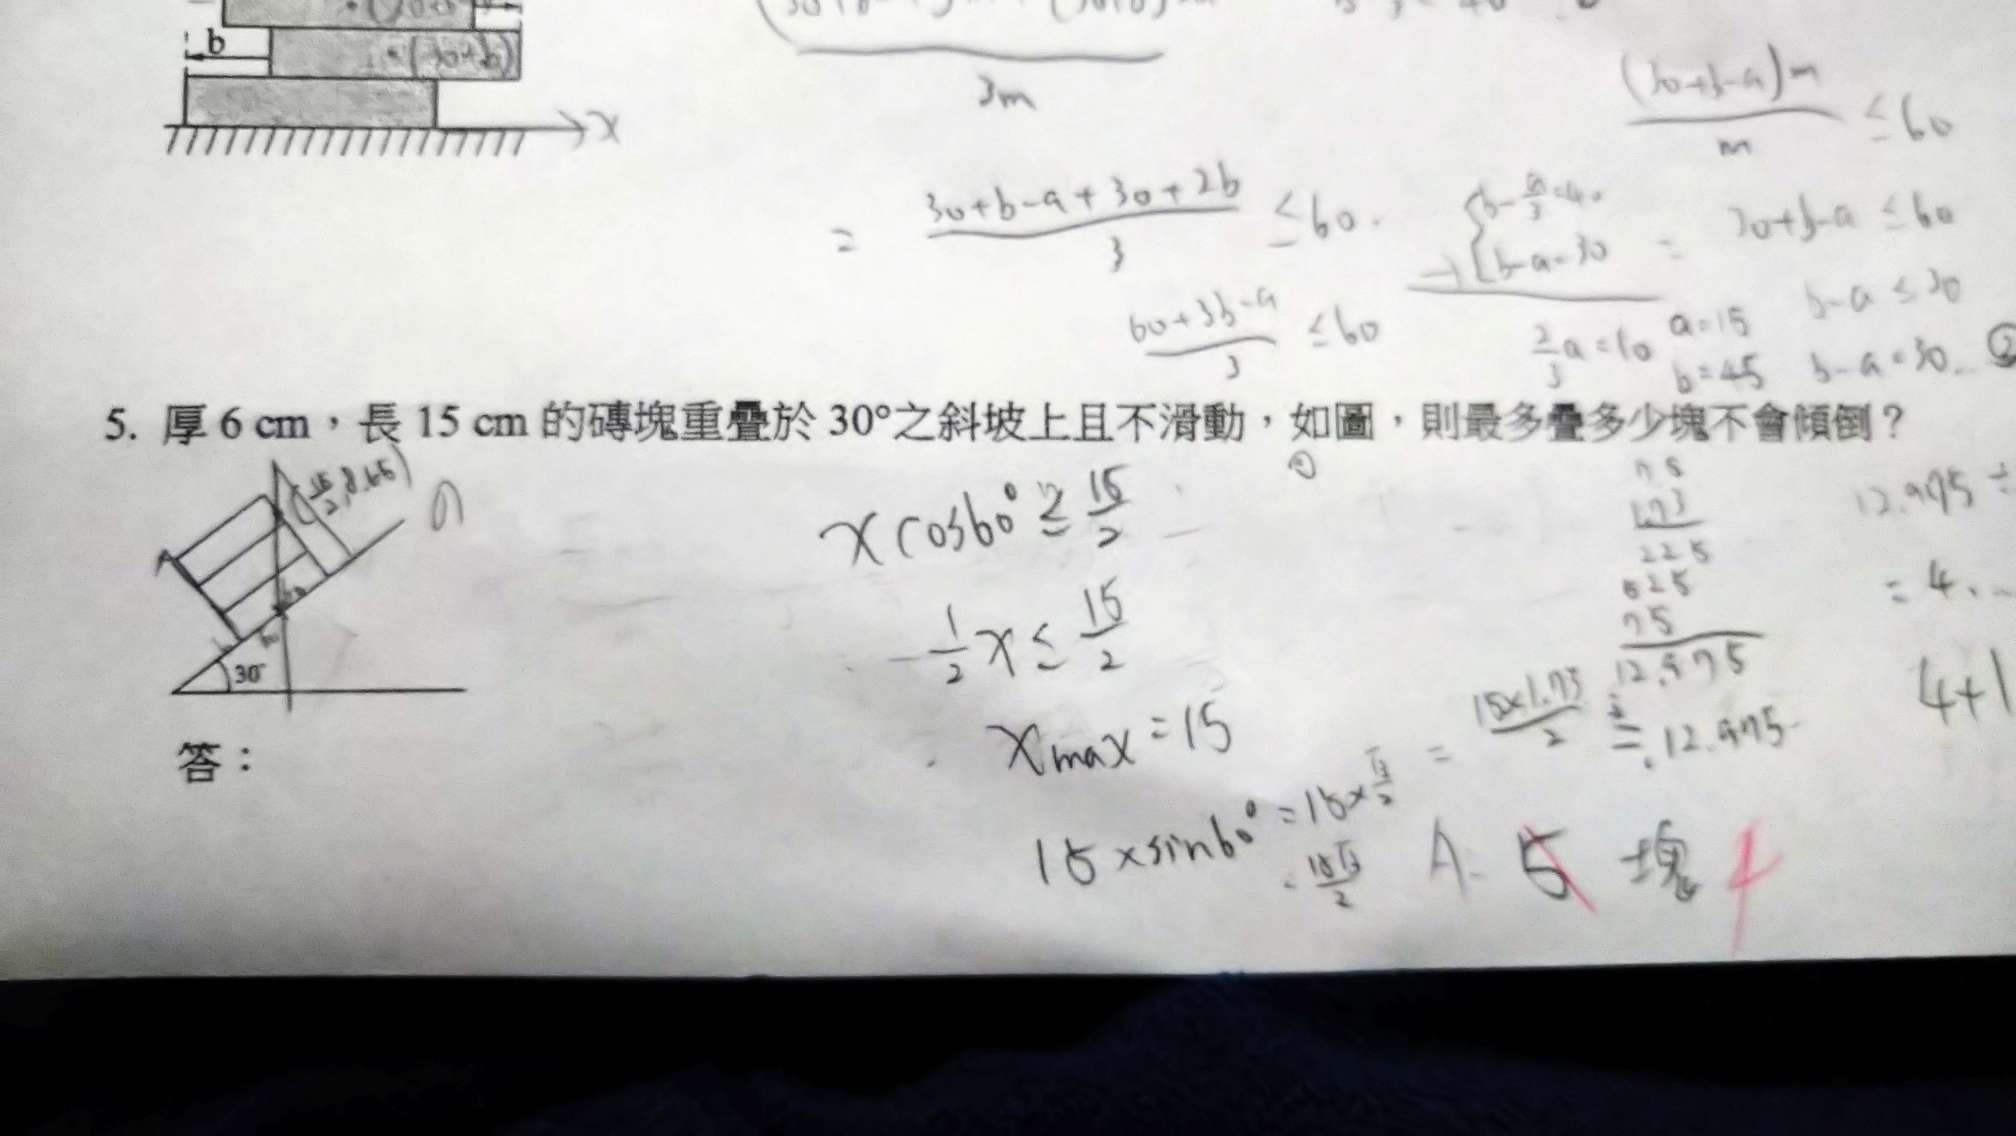 b
(30+b)
x
3m
(30+b-a)m
m
≤60
= 30+b-a+30+2b
3
≤60.
b-a=30
30+b-a≤60
60+3b-a
3
≤60
2
3
a=10
a=15
b=45
b-a≤30
b-a=30... ②
5. 厚 6 cm，長 15 cm 的磚塊重疊於 30°之斜坡上且不滑動，如圖，則最多疊多少塊不會傾倒？
30°
答：
x cos60° ≥ 15
2
1
2
x ≤ 15
2
xmax = 15
15×sin60° = 15×√3
2
= 15√3
2
= 15×1.73
2
≒ 12.975
1.73
225
75
12.975
12.975 ÷
= 4. ...
4+1
A: 5 塊 4